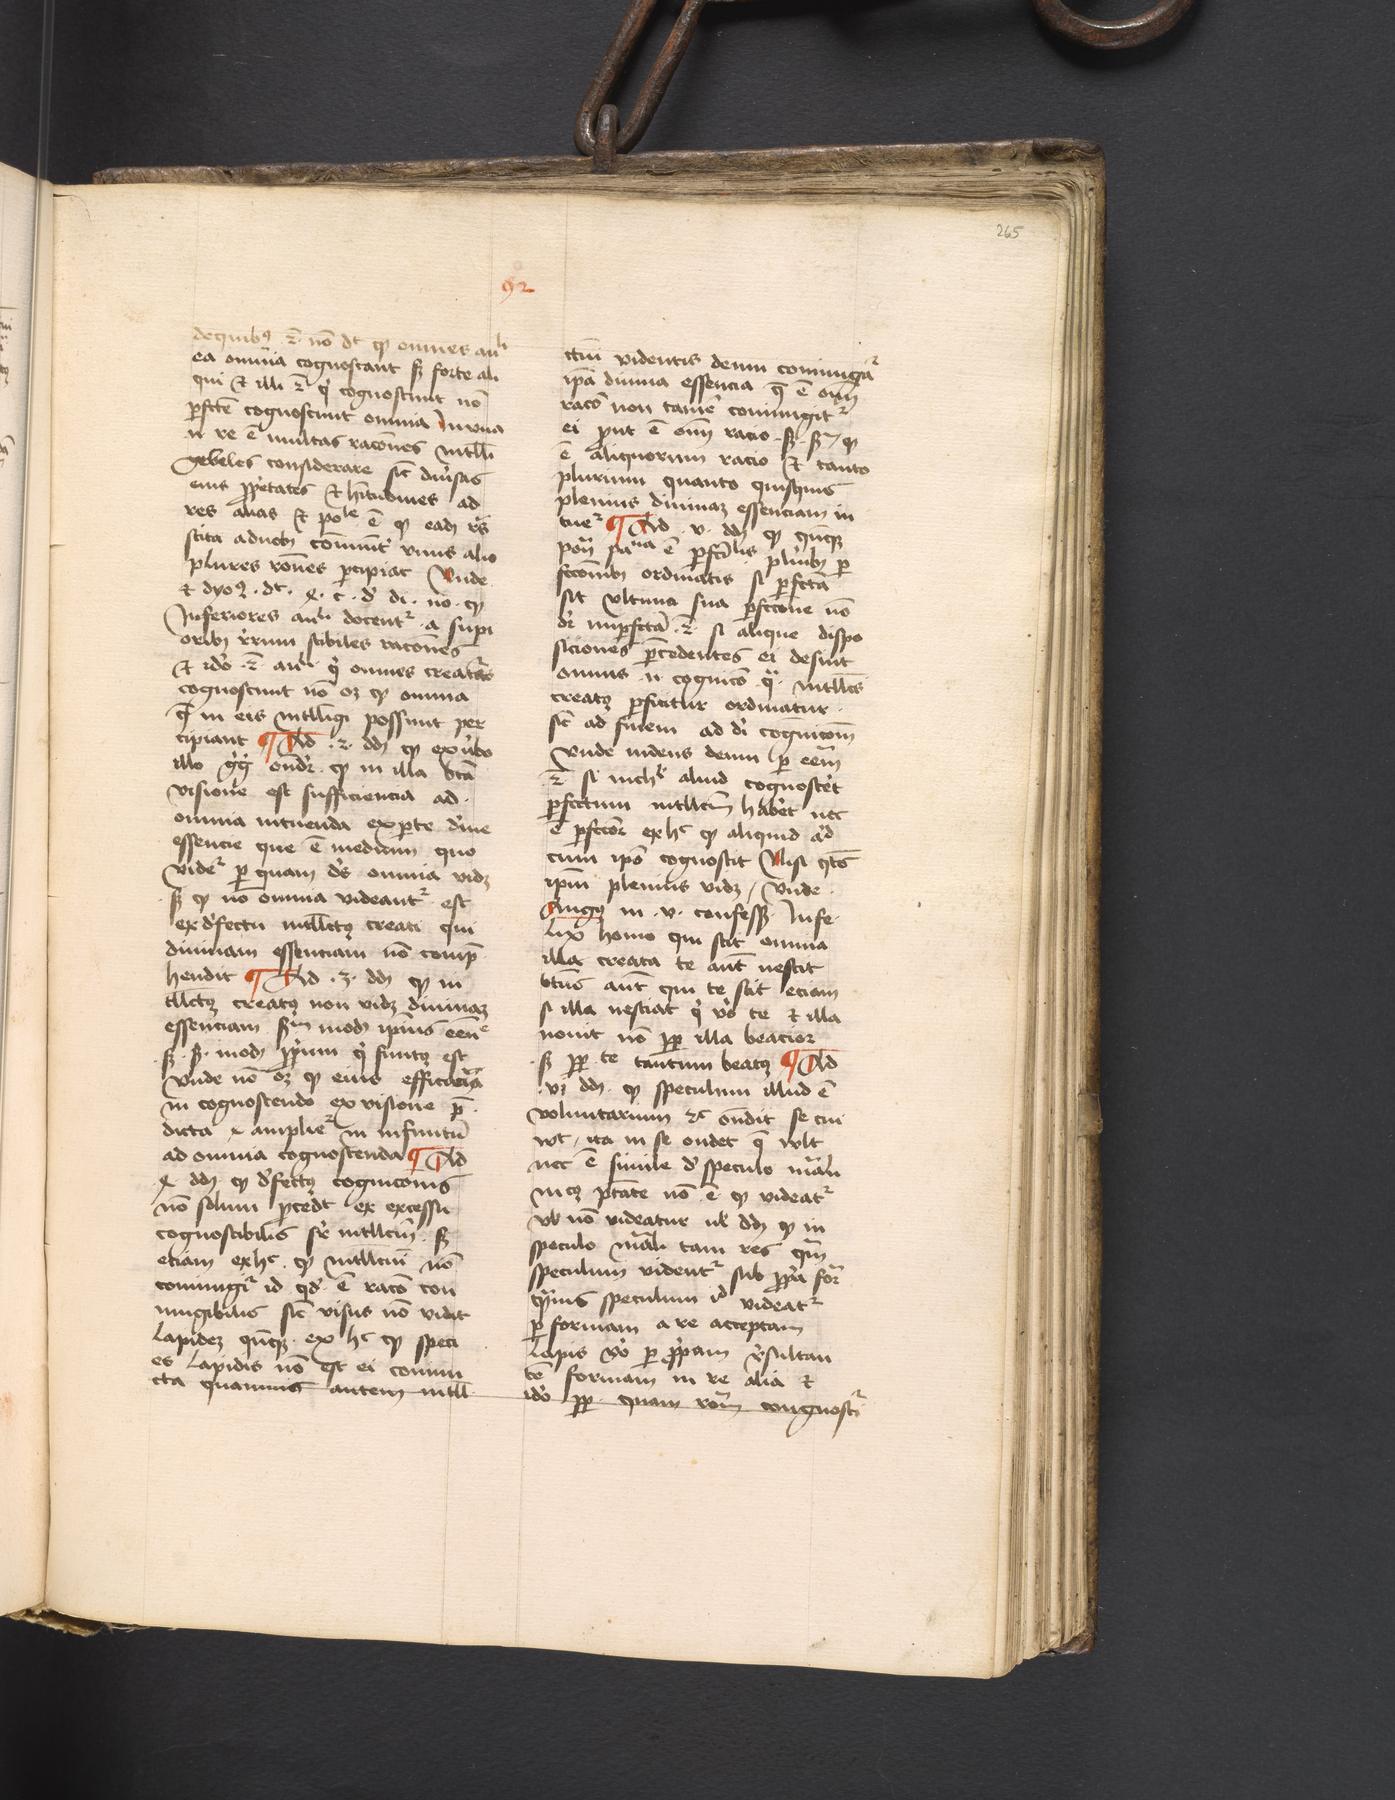 265
92
de quibꝰ ·2· nō dꝛ qꝫ omnes anᵍˡⁱ
ea omnia cognoscant sꝫ forte ali
qui et illi ·2· qⁱ cognoscunt nō
ꝑfcte cognoscunt omnia In una
n̄ re ē multas racōnes intelli
gebiles considerare sic diuersas
eius ꝓprietates et hitudines ad
res alias et poˡᵉ ē qꝫ eadꝫ re
scita a duobꝫ cōmunit̉ unus alio
plures rōnes ꝑcipiat Vnde
et dyoꝰ · dt · 4 · c · de di · no · qꝫ
Inferiores anᵍˡⁱ docentᵘʳ a supi
oribꝫ rerum scibiles racōnes
et ido ·2· anᵍˡⁱ qⁱ omnes creatas
cognoscunt nō oꝫ qꝫ omnia
q̄ in eis intelligi possunt per
cipiant ¶ Ad · 2 · ddꝫ qꝫ ex ūbo
illo gͥgͥ ondr̄ qꝫ in illa btā
visione est sufficiencia ad
omnia intuenda ex ꝑte diuine
essencie que ē medium quo
videᵗʳ ꝑ quam ds̄ omnia videꝫ
sꝫ qꝫ nō omnia videantᵘʳ est
ex defectu intllctꝰ creati qui
diuinam essentiam nō comp̄
hendit ¶ Ad · 3 · ddꝫ qꝫ in
tllctꝰ creatꝰ non videꝫ diuinaꝫ
essenciam scdm modꝫ ipsius eēne
sꝫ · s · modꝫ ꝓprium qⁱ finitꝰ est
vnde nō oꝫ qꝫ eius efficacia
in cognoscendo ex visione p̄
dicta · ampliet̉ in infinitū
ad omnia cognoscenda ¶ Ad
4 ddꝫ qꝫ defectꝰ cognicōnis
nō solum ꝓcedit ex excessu
cognoscibilis sr̄ intllcm̄ sꝫ
etiam ex hͨ qꝫ intllcui nō
coniungiᵗʳ id qd̄ ē racō con
iungibilis sic visus nō videt
lapideꝫ qn̄qꝫ ex hͨ qꝫ speci
es lapidis nō est ei coniu
cta quamuis autem intll
ctui videntis deum coniungaᵗʳ
ipā diuina essencia q̄ ē oim̄
racō non tamē coniungitᵘʳ
ei put ē oim̄ racio sꝫ s qꝫ
ē aliquorum racio et tanto
plurium quanto quisquis
plenius diuinaꝫ essenciam in
tueᵗʳ ¶ Ad · v · ddꝫ qꝫ qn̄qꝫ
pon̄ ē ꝑfctibilis pluribꝫ ꝑ
fecciombꝫ ordinatis si ꝑfecta
sit vltima sua ꝑfeccōne nō
dr̄ imꝑfecta ·2· si alique dispo
siciones p̄cedentes ei desint
omnis n̄ cognico qͣ intllcꝰ
creatꝰ ꝑficitur ordinatur
sic ad finem ad di cognicōm
vnde videns deum ꝑ eēm̄
·2· si nichil aliud cognosceret
ꝑfectum intllcm̄ haberet nec
ē ꝑfccior ex hͨ qꝫ aliquid ad
cum ipo cognoscit Nisi qtꝰ
ipm̄ plenius videꝫ / vnde
Augꝰ in · v · confess · Infe
lix homo qui scit omnia
illa creata te aut̄ nescit
btus aut̄ qui te scit etiam
si illa nesciat qⁱ vo te et illa
nouit nō ꝓp illa beacior
sꝫ ꝓp te tantum beatꝰ ¶ Ad
· vi · ddꝫ qꝫ speculum illud ē
voluntarium et ondit se cui
wlt · ita in se ondet q̄ wlt
nec ē simile de speculo mātli
in cꝰ ptate nō ē qꝫ videatᵘʳ
vl̄ nō videatur vel ddꝫ qꝫ in
speculo mātli tam res qm̄
speculum videntᵘʳ sub ꝓpria forā
speculum id videatᵘʳ
ꝑ formam a re acceptam
lapis vo ꝑ ꝓpriam resultan
tē formam in re alia et
ido ꝓp quam rōm̄ congnoscᵗʳ